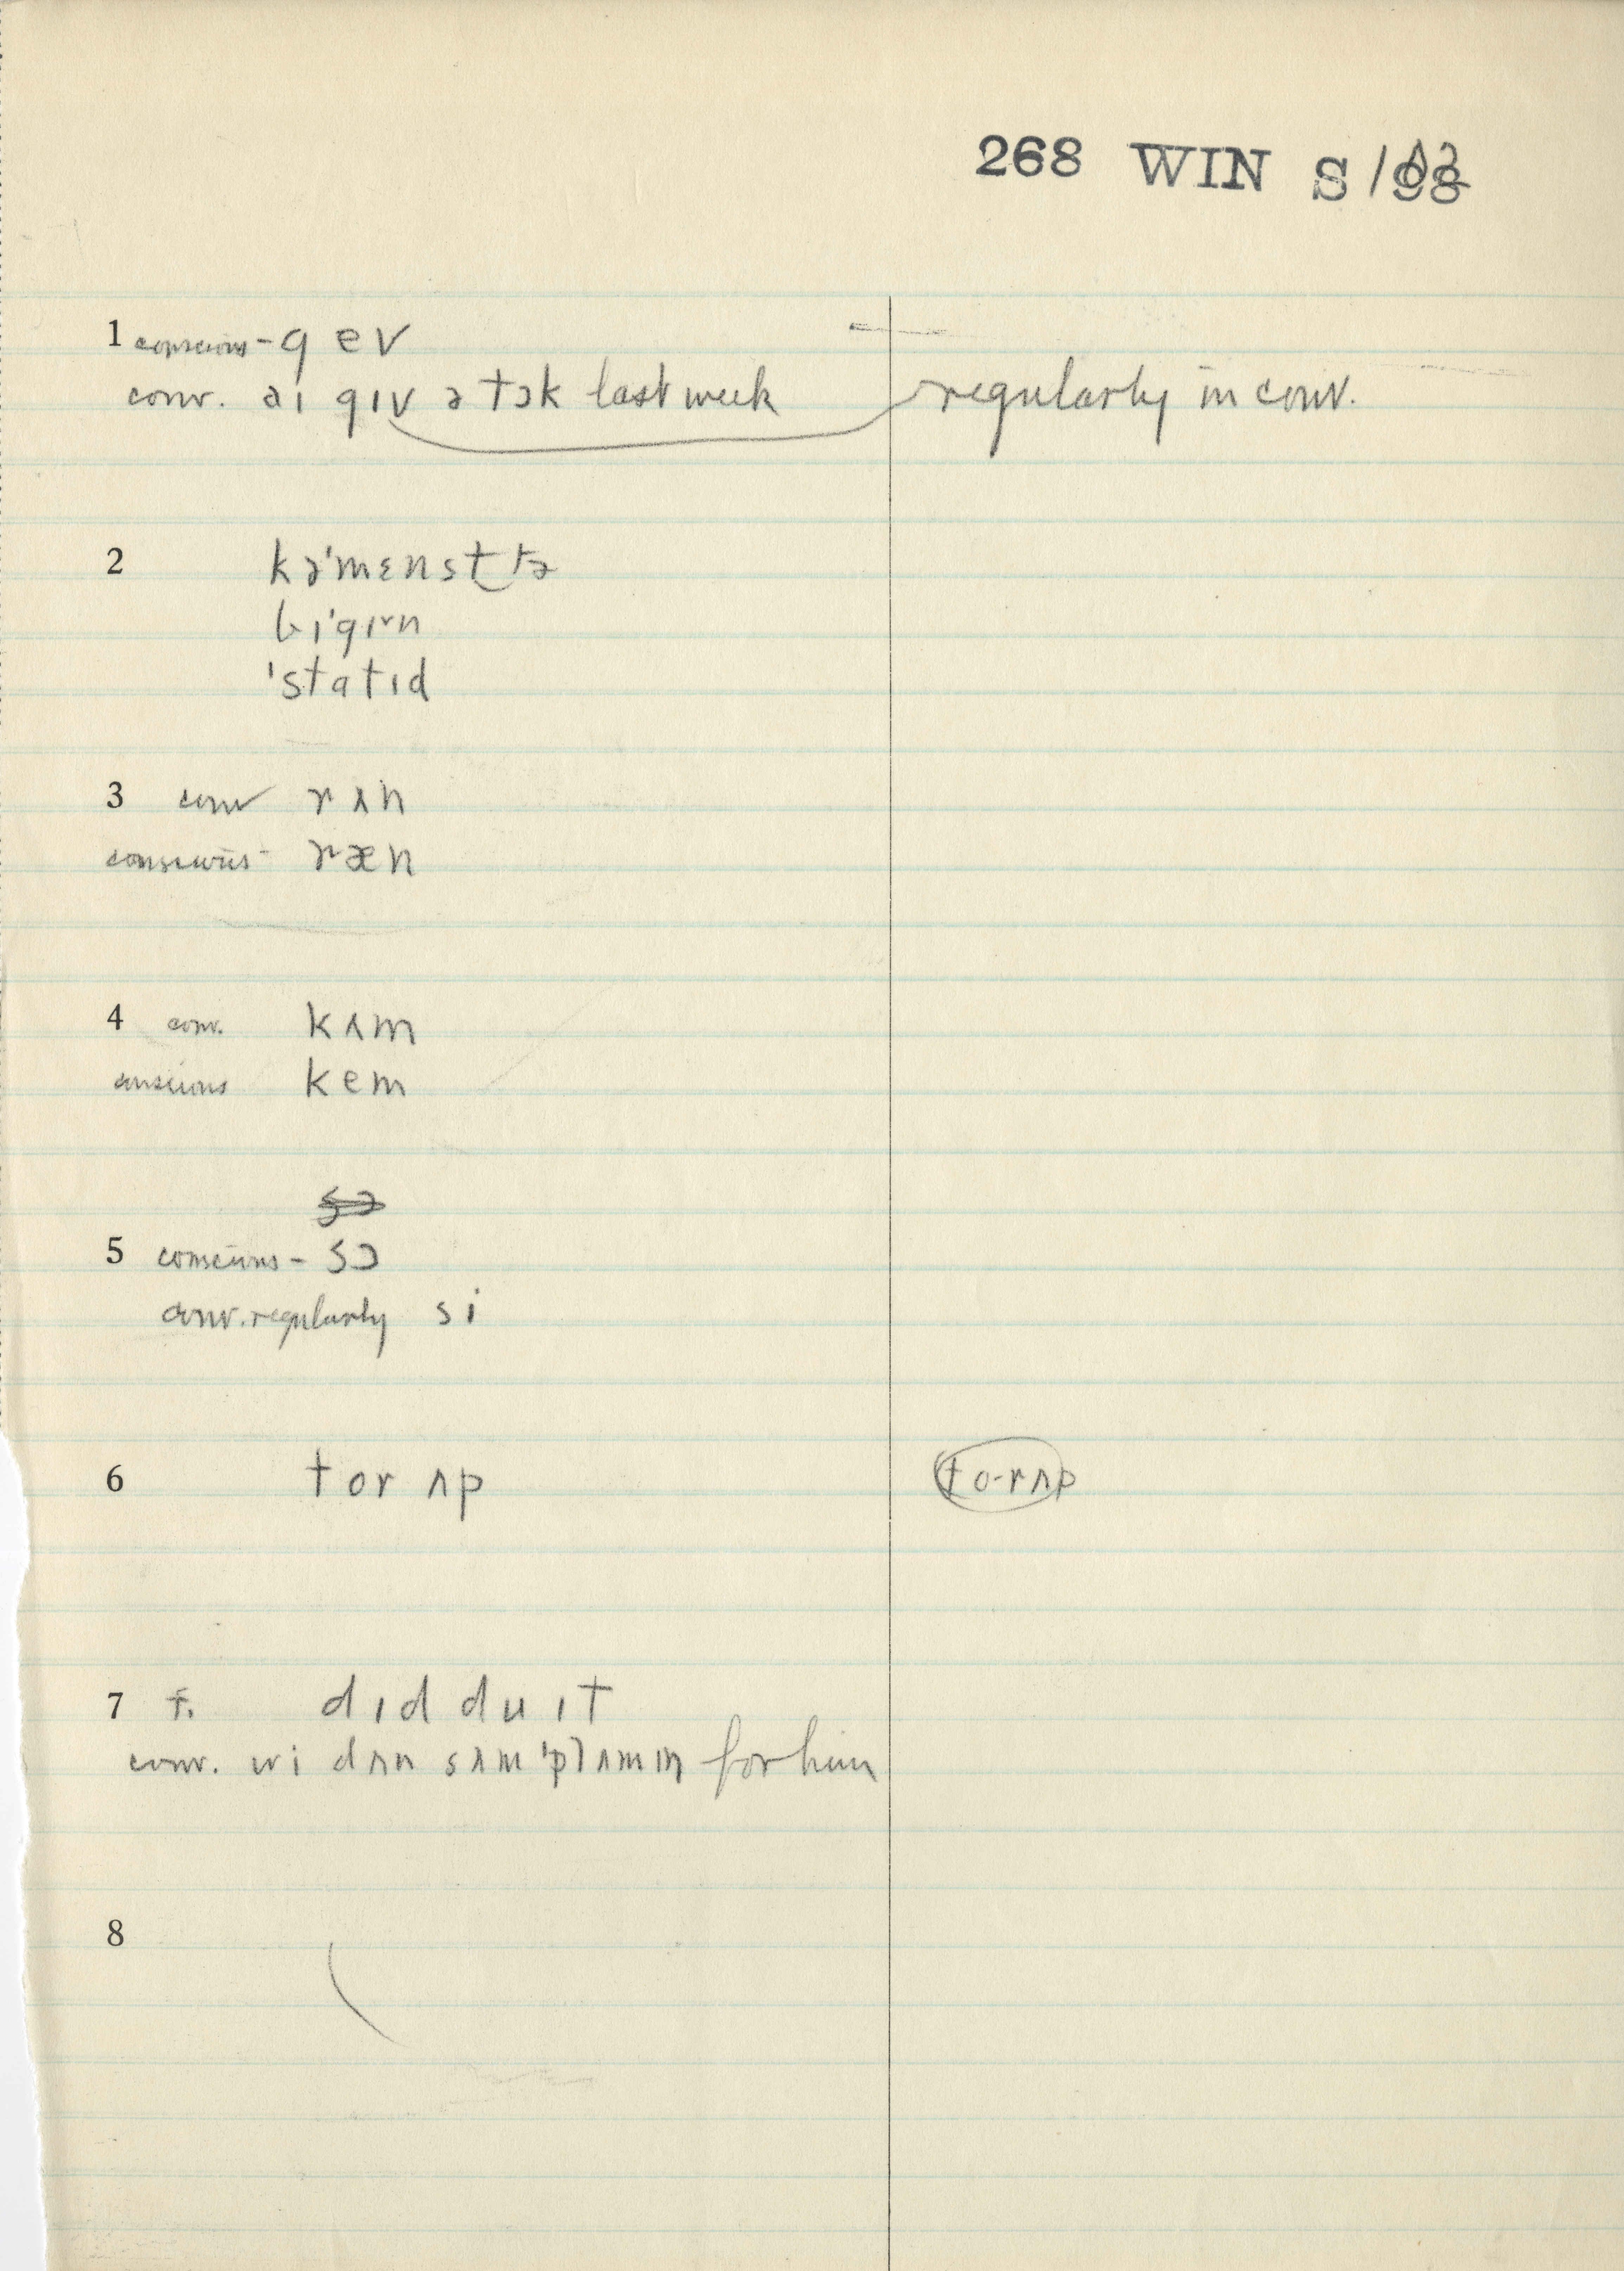 268 WIN S/
1 conscious - gev
conv. aɪ gɪv ə tɔk last week regularly in conv.
2 kə'mɛnst tə
bɪ'gɪᵛn
'statɪd
3 conv rʌn
conscious - ræn
4 conv. kʌm
conscious kem
sɔ
5 conscious - sɔ
conv. regularly si
6 tor ʌp to-rʌp
7 f. dɪd du ɪt
conv. wi dʌn sʌm 'plʌmɪŋ for him
8